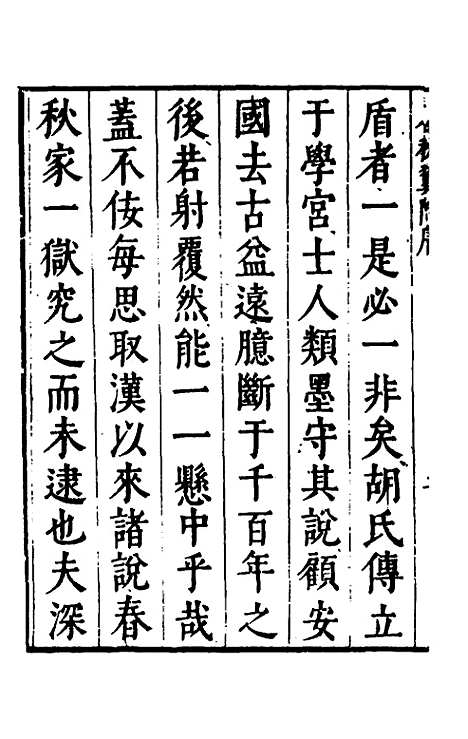 盾者一是必一非矣胡氏傳立
于學宮士人類墨守其說顧安
國去古益遠臆斷于千百年之
後若射覆然能一一懸中乎哉
蓋不佞每思取漢以來諸說春
秋家一獄究之而未逮也夫深